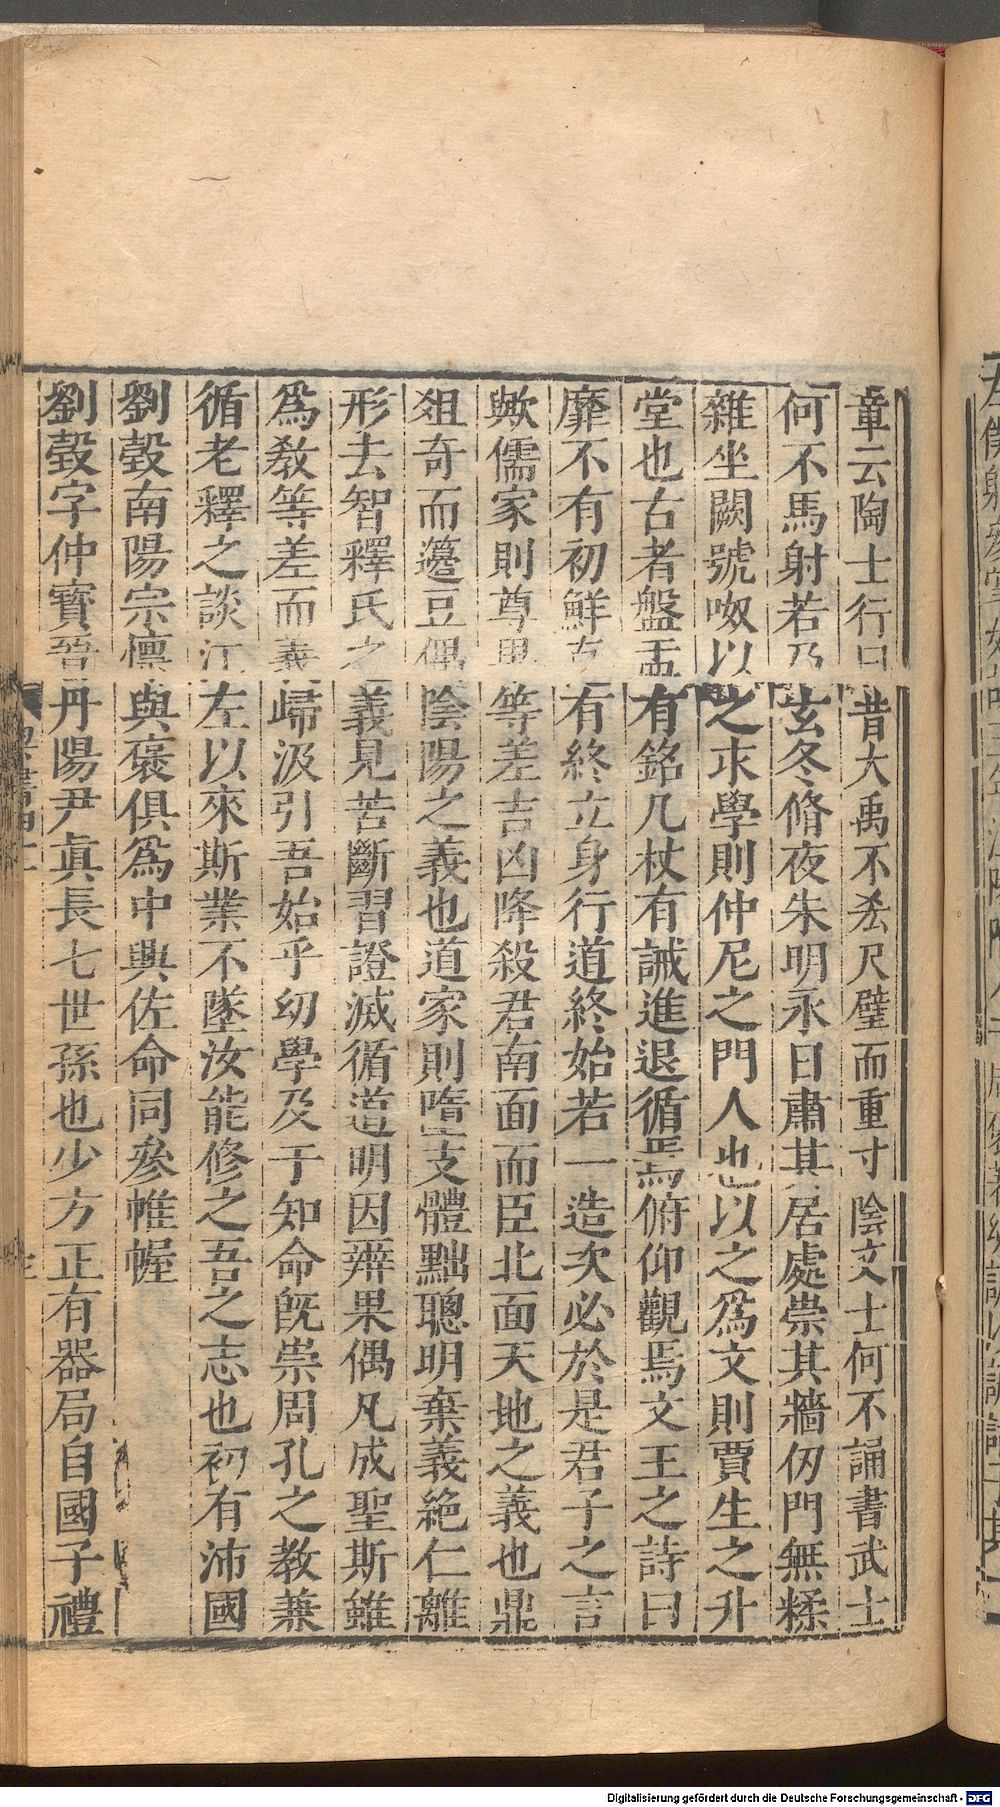 章云陶士行曰昔大禹不𠫤尺璧而重寸陰文士何不誦書武士
何不馬射若乃玄冬脩夜朱明永日肅其居處崇其牆仞門無糅
雜坐闕號呶以之求學則仲尼之門人也以之爲文則賈生之升
堂也古者盤盂有銘几杖有誡進退循焉俯仰觀焉文王之詩曰
靡不有初鮮克有終立身行道終始若一造次必於是君子之言
歟儒家則尊卑等差吉凶降殺君南面而臣北面天地之義也鼎
俎奇而籩豆偶陰陽之義也道家則墮支體黜聰明棄義絶仁離
形去智釋氏之義見苦斷習證滅循道明因辨果偶凡成聖斯雖
爲教等差而義歸汲引吾始乎幼學及于知命旣崇周孔之教兼
循老釋之談江左以來斯業不墜汝能修之吾之志也初有沛國
劉瑴南陽宗懍與襃俱爲中興佐命同參帷幄
劉瑴字仲寳晉丹陽尹眞長七世孫也少方正有器局自國子禮
Digitalisierung gefördert durch die Deutsche Forschungsgemeinschaft - DFG